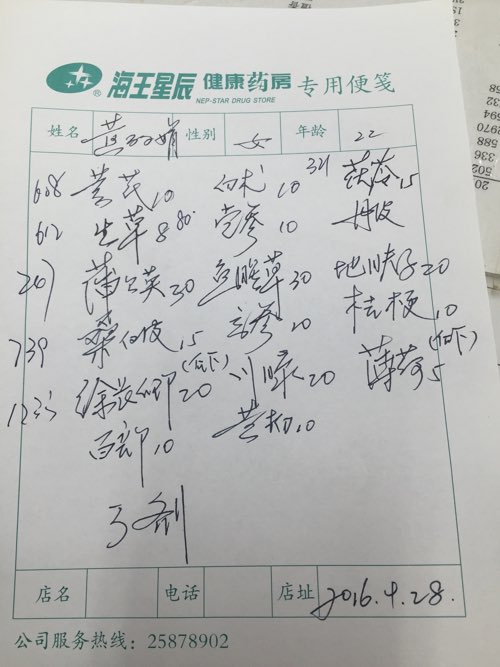 海王星辰 健康药房 专用便笺
NEP-STAR DRUG STORE
姓名 性别 女 年龄 22
608 黄芪10 白术10 321 茯苓15
612 生草8 80 党参10 丹皮
267 蒲公英30 鱼腥草30 地肤子20
739 桑白皮15 玄参10 桔梗10
1235 徐长卿20(后下) 20 薄荷5(后下)
百部10 黄芩10
3剂
店名 电话 店址 2016.4.28.
公司服务热线：25878902